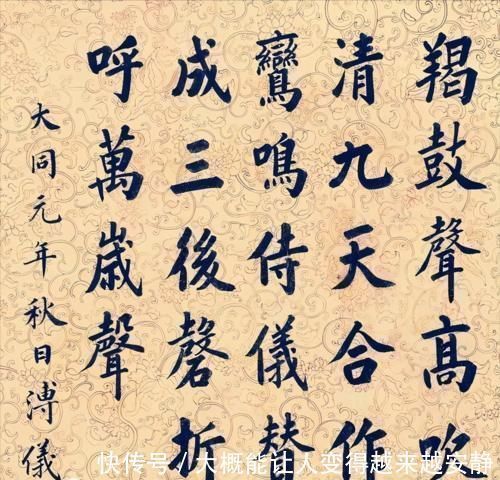 羯鼓聲高吹
清九天合作
鸞鳴侍儀
成三後磬折
呼萬歲聲
大同元年秋日溥儀
快传号/大概能让人变得越来越安静